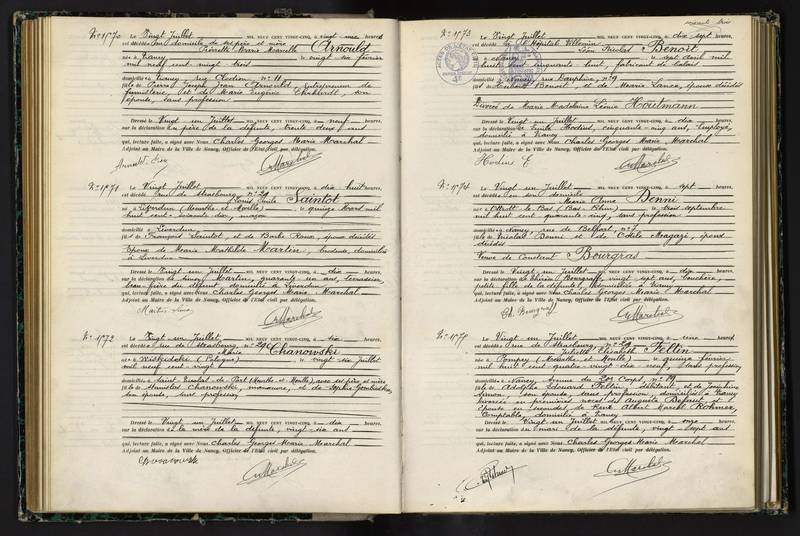 N° 1570 Le Vingt Juillet MIL NEUF CENT VINGT-CINQ, à vingt une heures
est décédée au domicile de ses père et mère
Pierrette Marie Marcelle Arnould
née à Nancy le vingt six février
mil neuf cent vingt trois
domiciliée à Nancy rue Clodion n° 11
fille de Pierre Joseph Jean Arnould, entrepreneur de
fumisterie, et de Marie Eugénie son
épouse, sans profession
Dressé le Vingt un Juillet MIL NEUF CENT VINGT-CINQ, à neuf heures,
sur la déclaration du père de la défunte, trente deux ans
qui, lecture faite, a signé avec Nous, Charles Georges Marie Marchal
Adjoint au Maire de la Ville de Nancy, Officier de l'Etat civil par délégation.
N° 1571 Le Vingt Juillet MIL NEUF CENT VINGT-CINQ, à dix huit heures
est décédé rue de Strasbourg n° 29
Louis Emile Saintot
né à Liverdun (Meurthe et Moselle) le quinze Avril mil
huit cent soixante dix, maçon
domicilié à Liverdun
fils de François Saintot, et de Barbe Roux, époux décédés
Epoux de Marie Mathilde Martin, domiciliée
à Liverdun
Dressé le Vingt un Juillet MIL NEUF CENT VINGT-CINQ, à dix heures,
sur la déclaration de Martin, quarante un ans, terrassier,
beau frère du défunt, domicilié à Liverdun
qui, lecture faite, a signé avec Nous, Charles Georges Marie Marchal
Adjoint au Maire de la Ville de Nancy, Officier de l'Etat civil par délégation.
N° 1572 Le Vingt un Juillet MIL NEUF CENT VINGT-CINQ, à six heures
est décédée rue de Strasbourg n° 29
Maria Chanowski
née à (Pologne) le vingt six Juillet
mil neuf cent vingt
domiciliée à Saint Nicolas de Port (Meurthe et Moselle) avec ses père et mère
fille de Stanislas Chanowski, manœuvre, et de Sophie
son épouse, sans profession
Dressé le Vingt un Juillet MIL NEUF CENT VINGT-CINQ, à dix heures,
sur la déclaration de la mère de la défunte, vingt six ans
qui, lecture faite, a signé avec Nous, Charles Georges Marie Marchal
Adjoint au Maire de la Ville de Nancy, Officier de l'Etat civil par délégation.
N° 1573 Le Vingt Juillet MIL NEUF CENT VINGT-CINQ, à dix sept heures,
est décédé à l'Hôpital Villemin
Léon Nicolas Benoit
né à Nancy le sept Août mil
huit cent cinquante huit, fabricant de balais
domicilié à Nancy, rue Dauphine n° 9
fils de Benoit, et de Marie Lance, époux décédés
Divorcé de Marie Madeleine Léonie Houtmann
Dressé le Vingt un Juillet MIL NEUF CENT VINGT-CINQ, à dix heures,
sur la déclaration de Emile Hodier, cinquante cinq ans, employé,
domicilié à Nancy
qui, lecture faite, a signé avec Nous, Charles Georges Marie Marchal
Adjoint au Maire de la Ville de Nancy, Officier de l'Etat civil par délégation.
N° 1574 Le Vingt un Juillet MIL NEUF CENT VINGT-CINQ, à sept heures,
est décédée en son domicile
Marie Anne Denni
née à (Bas-Rhin) le trois septembre
mil huit cent quarante cinq, sans profession
domiciliée à Nancy, rue de Belfort n°
fille de Nicolas Denni et de Odile époux
décédés
Veuve de Constant Bourgras
Dressé le Vingt un Juillet MIL NEUF CENT VINGT-CINQ, à dix heures,
sur la déclaration de vingt sept ans, bouchère,
petite fille de la défunte, domiciliée à Nancy
qui, lecture faite, a signé avec Nous, Charles Georges Marie Marchal
Adjoint au Maire de la Ville de Nancy, Officier de l'Etat civil par délégation.
N° 1575 Le Vingt un Juillet MIL NEUF CENT VINGT-CINQ, à cinq heures,
est décédée rue de Strasbourg, n° 29
Juliette Elisabeth Fellin
née à Pompey (Meurthe et Moselle) le quinze février
mil huit cent quatre vingt dix neuf, sans profession
domiciliée à Nancy, Avenue du 20e Corps, n° 19
fille de Edouard Fellin, débitant, et de Joséphine
son épouse, sans profession, domiciliés à Nancy
divorcée en premières noces de Auguste
épouse en secondes de René Albert Marcel Rohmer
Comptable, domicilié à Nancy
Dressé le Vingt un Juillet MIL NEUF CENT VINGT-CINQ, à onze heures,
sur la déclaration du mari de la défunte, vingt sept ans
qui, lecture faite, a signé avec Nous, Charles Georges Marie Marchal
Adjoint au Maire de la Ville de Nancy, Officier de l'Etat civil par délégation.